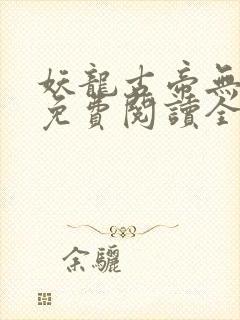 妖龍古帝無
免費閱讀全
余驪